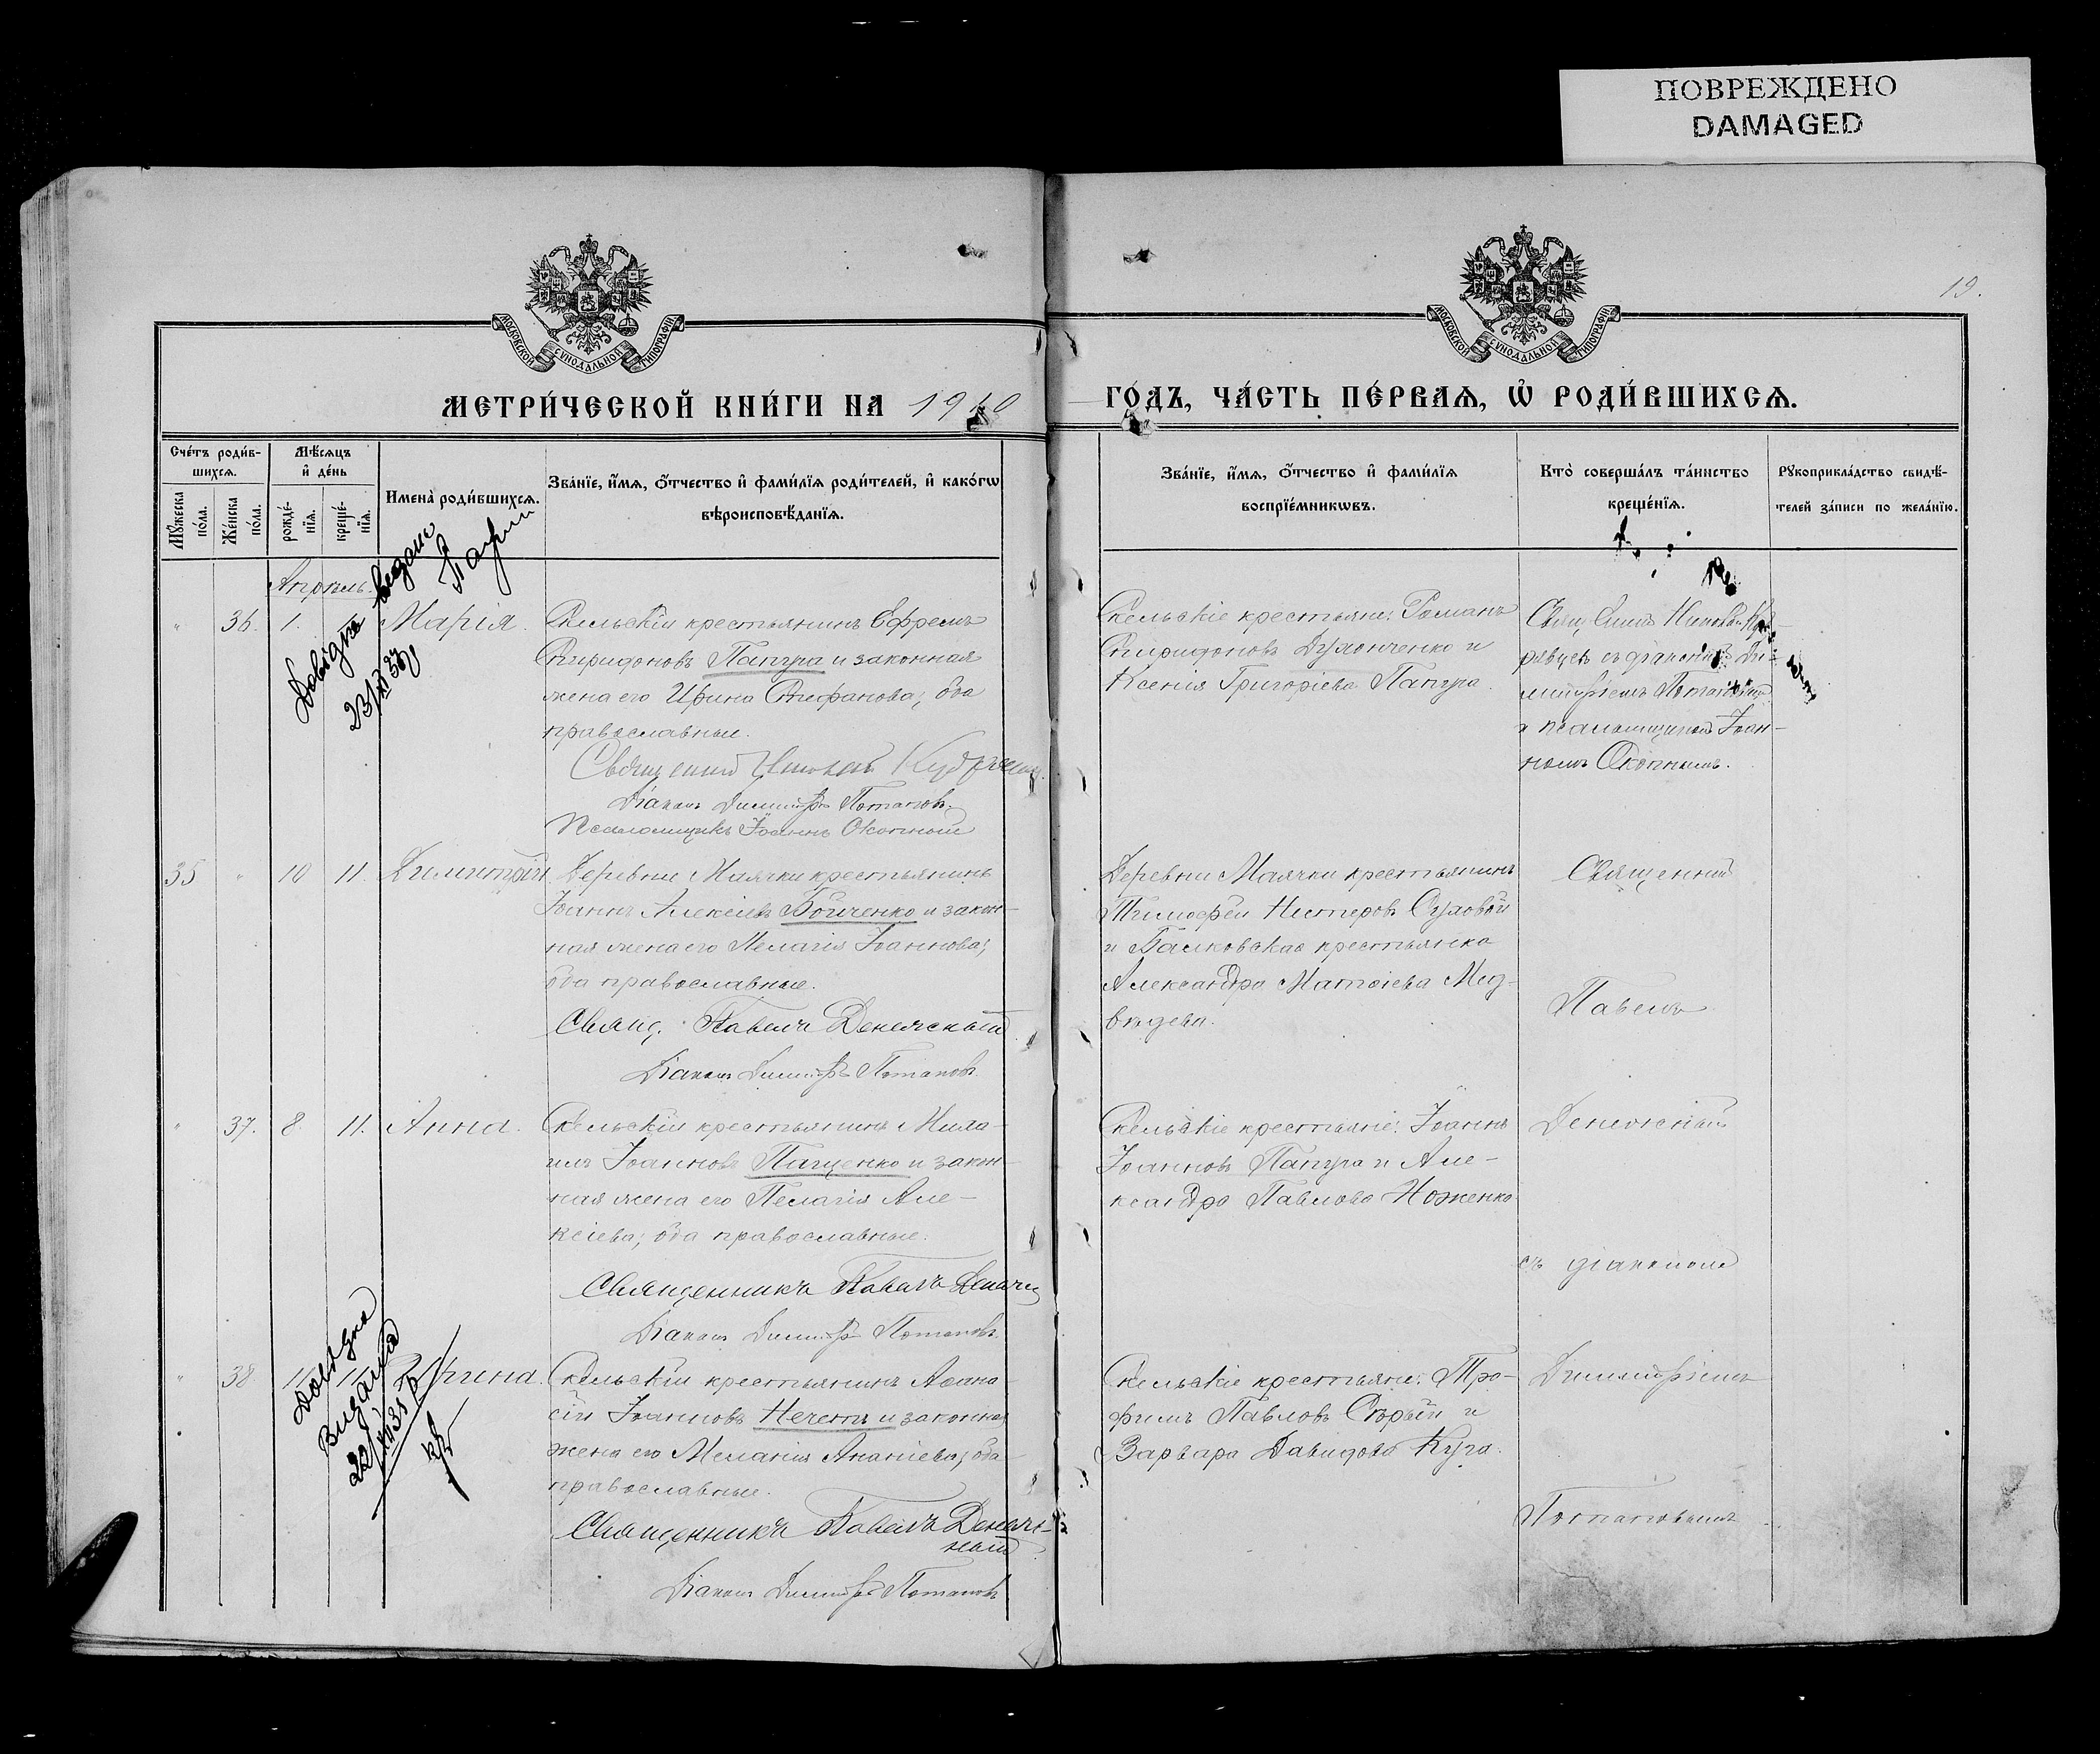 ПОВРЕЖДЕНО
DAMAGED
19.
МОСКОВСКОЙ СѴНОДАЛЬНОЙ ТИПОГРАФІИ
МОСКОВСКОЙ СѴНОДАЛЬНОЙ ТИПОГРАФІИ
МЕТРИ́ЧЕСКОЙ КНИ́ГИ НА 1910 ГО́ДЪ, ЧА́СТЬ ПЕ́РВАѦ, Ѡ҆ РОДИ́ВШИХСѦ.
Сче́тъ роди́в-
шихсѧ.
Мꙋ́жеска
по́ла.
Же́нска
по́ла.
Мѣ́сѧцъ
и҆ де́нь
рожде́-
нїѧ.
креще́-
нїѧ.
И҆мена̀ роди́вшихсѧ.
Зва́нїе, и҆́мѧ, ѻ҆́тчество и҆ фами́лїѧ роди́телей, и҆ како́гѡ
вѣроисповѣ́данїѧ.
Зва́нїе, и҆́мѧ, ѻ҆́тчество и҆ фами́лїѧ
воспрїе́мникѡвъ.
Кто̀ соверша́лъ та́инство
креще́нїѧ.
Рꙋкоприкла́дство свидѣ́-
телей за́писи по жела́нїю.
Апрѣль.
36. 1. Марія.
Скельскій крестьянинъ Ефремъ
Спиридоновъ Папура и законная
жена его Ирина Стефанова; оба
православные.
Діаконъ Димитрій Потаповъ.
Псаломщикъ Іоаннъ Окопный
Скельскіе крестьяне: Романъ
Спиридоновъ и
Ксенія Григоріева Папура.
съ діакономъ Ди-
митріемъ Потаповымъ
и псаломщикомъ Іоан-
номъ Окопнымъ.
35 10 11. Димитрій
Деревни Маячки крестьянинъ
Іоаннъ Алексіевъ Бойченко и закон-
ная жена его Пелагія Іоаннова;
оба православные.
Свящ. Павелъ
Діаконъ Димитрій Потаповъ.
Деревни Маячки крестьянинъ
Тимофей Нестеровъ Суховой
и крестьянка
Александра Матѳіева Мед-
вѣдева.
Священникъ
Павелъ
37. 8. 11. Анна.
Скельскій крестьянинъ Миха-
илъ Іоанновъ Пащенко и закон-
ная жена его Пелагія Але-
ксіева; оба православные.
Священникъ Павелъ
Діаконъ Димитрій Потаповъ.
Скельскіе крестьяне: Іоаннъ
Іоанновъ Папура и Але-
ксандра Павлова Ноженко
съ діакономъ
38 11 11 Ирина.
Скельскій крестьянинъ Аѳана-
сій Іоанновъ и законная
жена его Меланія Ананіева; оба
православные.
Священникъ Павелъ
Діаконъ Димитрій Потаповъ
Скельскіе крестьяне: Тро-
фимъ Павловъ Сѣрый и
Варвара Давидова Куча.
Димитріемъ
Потаповымъ
Довідка
видана